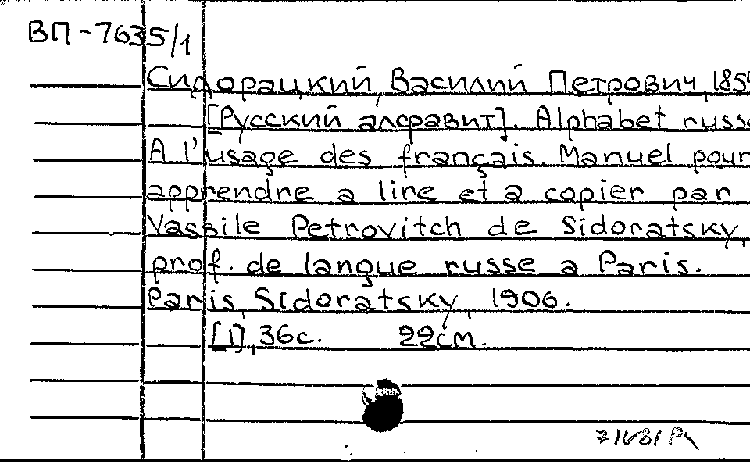 ВП-7635/1
Сидорацкий, Василий Петрович, 185
[Русский алфавит]. Alphabet russe
A l'usage des français. Manuel pour
apprendre a lire et a copier par
Vassile Petrovitch de Sidoratsky,
prof. de langue russe a Paris.
Paris, Sidoratsky, 1906.
[1], 36с. 22см.